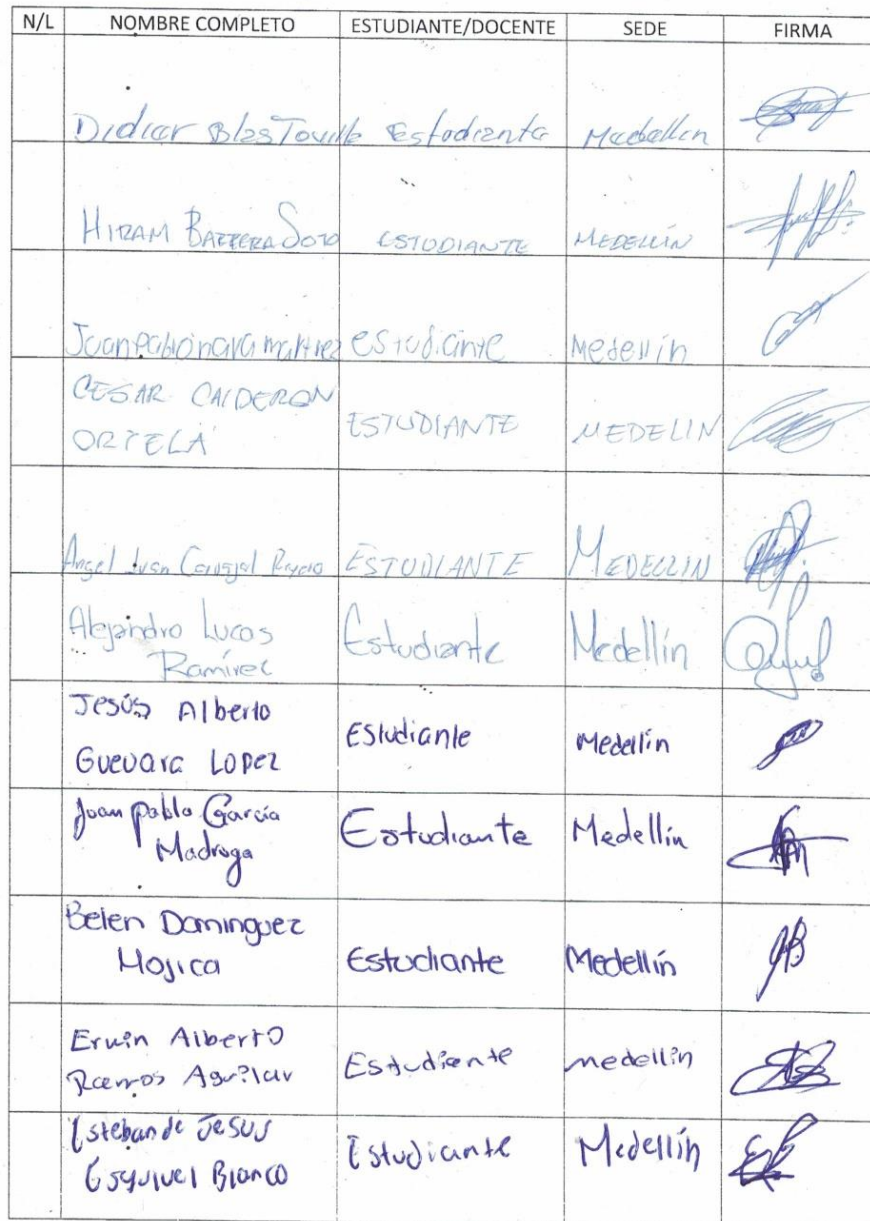 N/L NOMBRE COMPLETO ESTUDIANTE/DOCENTE SEDE FIRMA
Didier Blas Estudiante Medellin
HIRAM BARRERA SOTO ESTUDIANTE MEDELLÍN
Juan pablo nava martinez estudiante Medellín
CESAR CALDERON
ORTELA ESTUDIANTE MEDELIN
Angel Ivan Carvajal ESTUDIANTE MEDELLIN
Alejandro Lucas
Ramírez Estudiante Medellín
Jesús Alberto
Guevara Lopez Estudiante Medellín
Juan pablo García
Madroga Estudiante Medellín
Belen Dominguez
Mojica Estudiante Medellín
Erwin Alberto
Ramos Aguilar Estudiante medellin
Esteban de Jesus
Esquivel Blanco Estudiante Medellín